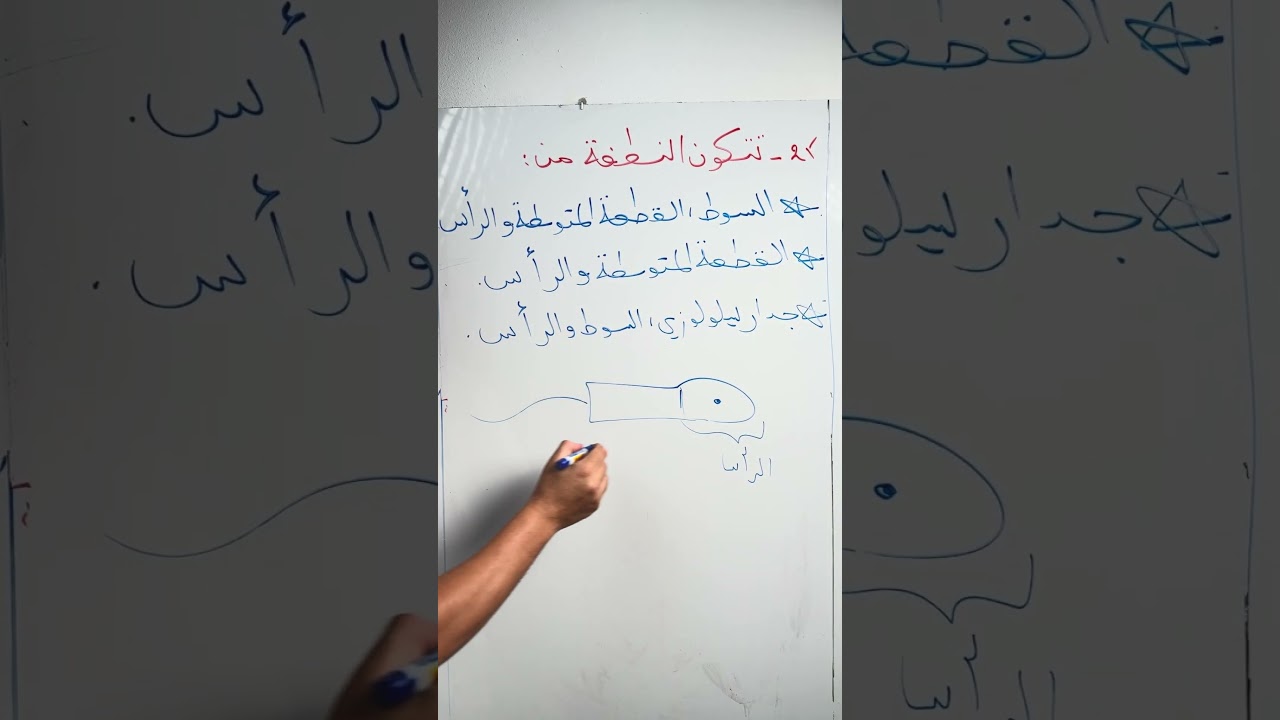 21- تتكون النطفة من:
* السوط، القطعة المتوسطة والرأس
* القطعة المتوسطة والرأس.
* جدار سيلولوزي، السوط والرأس.
الرأس